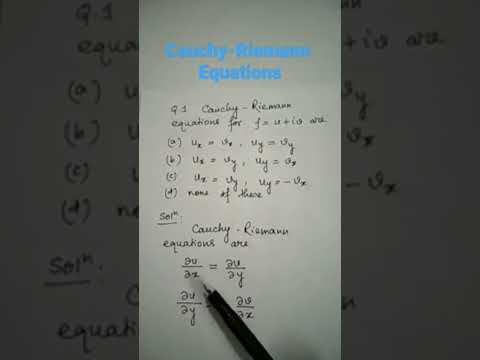 Cauchy-Riemann
Equations
Q.1 Cauchy-Riemann
equations for f = u+iv are
(a) uₓ = vₓ , u_y = v_y
(b) uₓ = v_y , u_y = vₓ
(c) uₓ = v_y , u_y = -vₓ
(d) none of these
Solⁿ.
Cauchy-Riemann
equations are
∂u/∂x = ∂v/∂y
∂u/∂y = ∂v/∂x